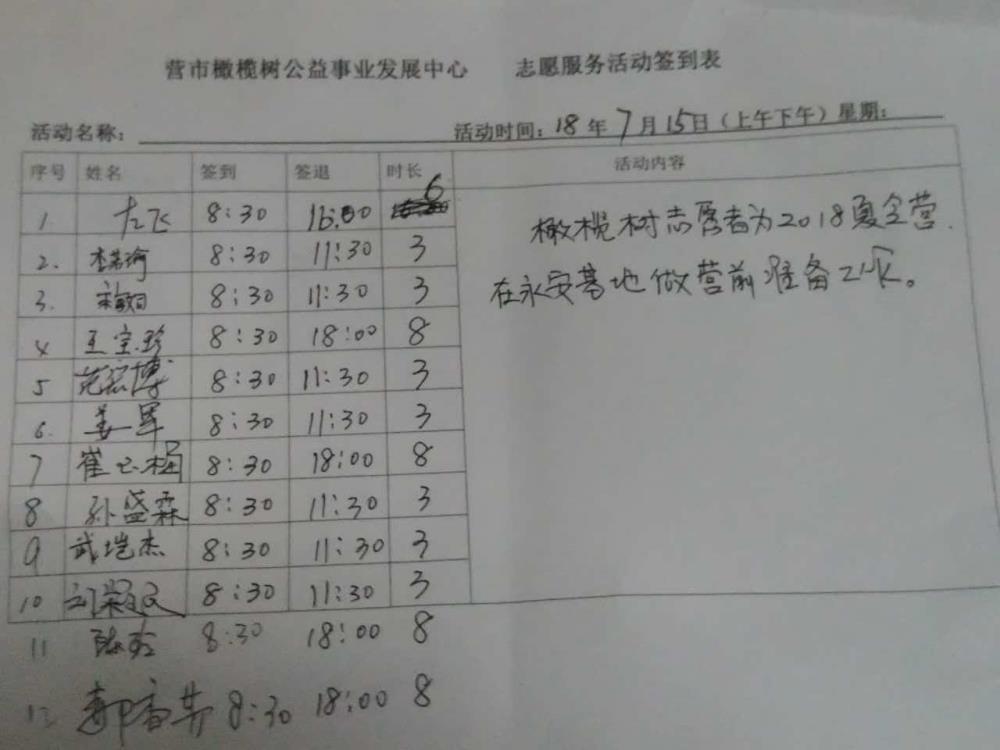 营市橄榄树公益事业发展中心 志愿服务活动签到表
活动名称: 活动时间: 18 年 7 月 15日 (上午下午) 星期:
序号 姓名 签到 签退 时长 活动内容
1. 左飞 8:30 16:00 6
橄榄树志愿者为2018夏令营
2. 8:30 11:30 3
在永安基地做营前准备工作。
3. 8:30 11:30 3
4 王宝珍 8:30 18:00 8
5 范宏博 8:30 11:30 3
6. 姜军 8:30 11:30 3
7 崔玉梅 8:30 18:00 8
8 孙盛霖 8:30 11:30 3
9 武垲杰 8:30 11:30 3
10 8:30 11:30 3
11 8:30 18:00 8
12 郭香芹 8:30 18:00 8